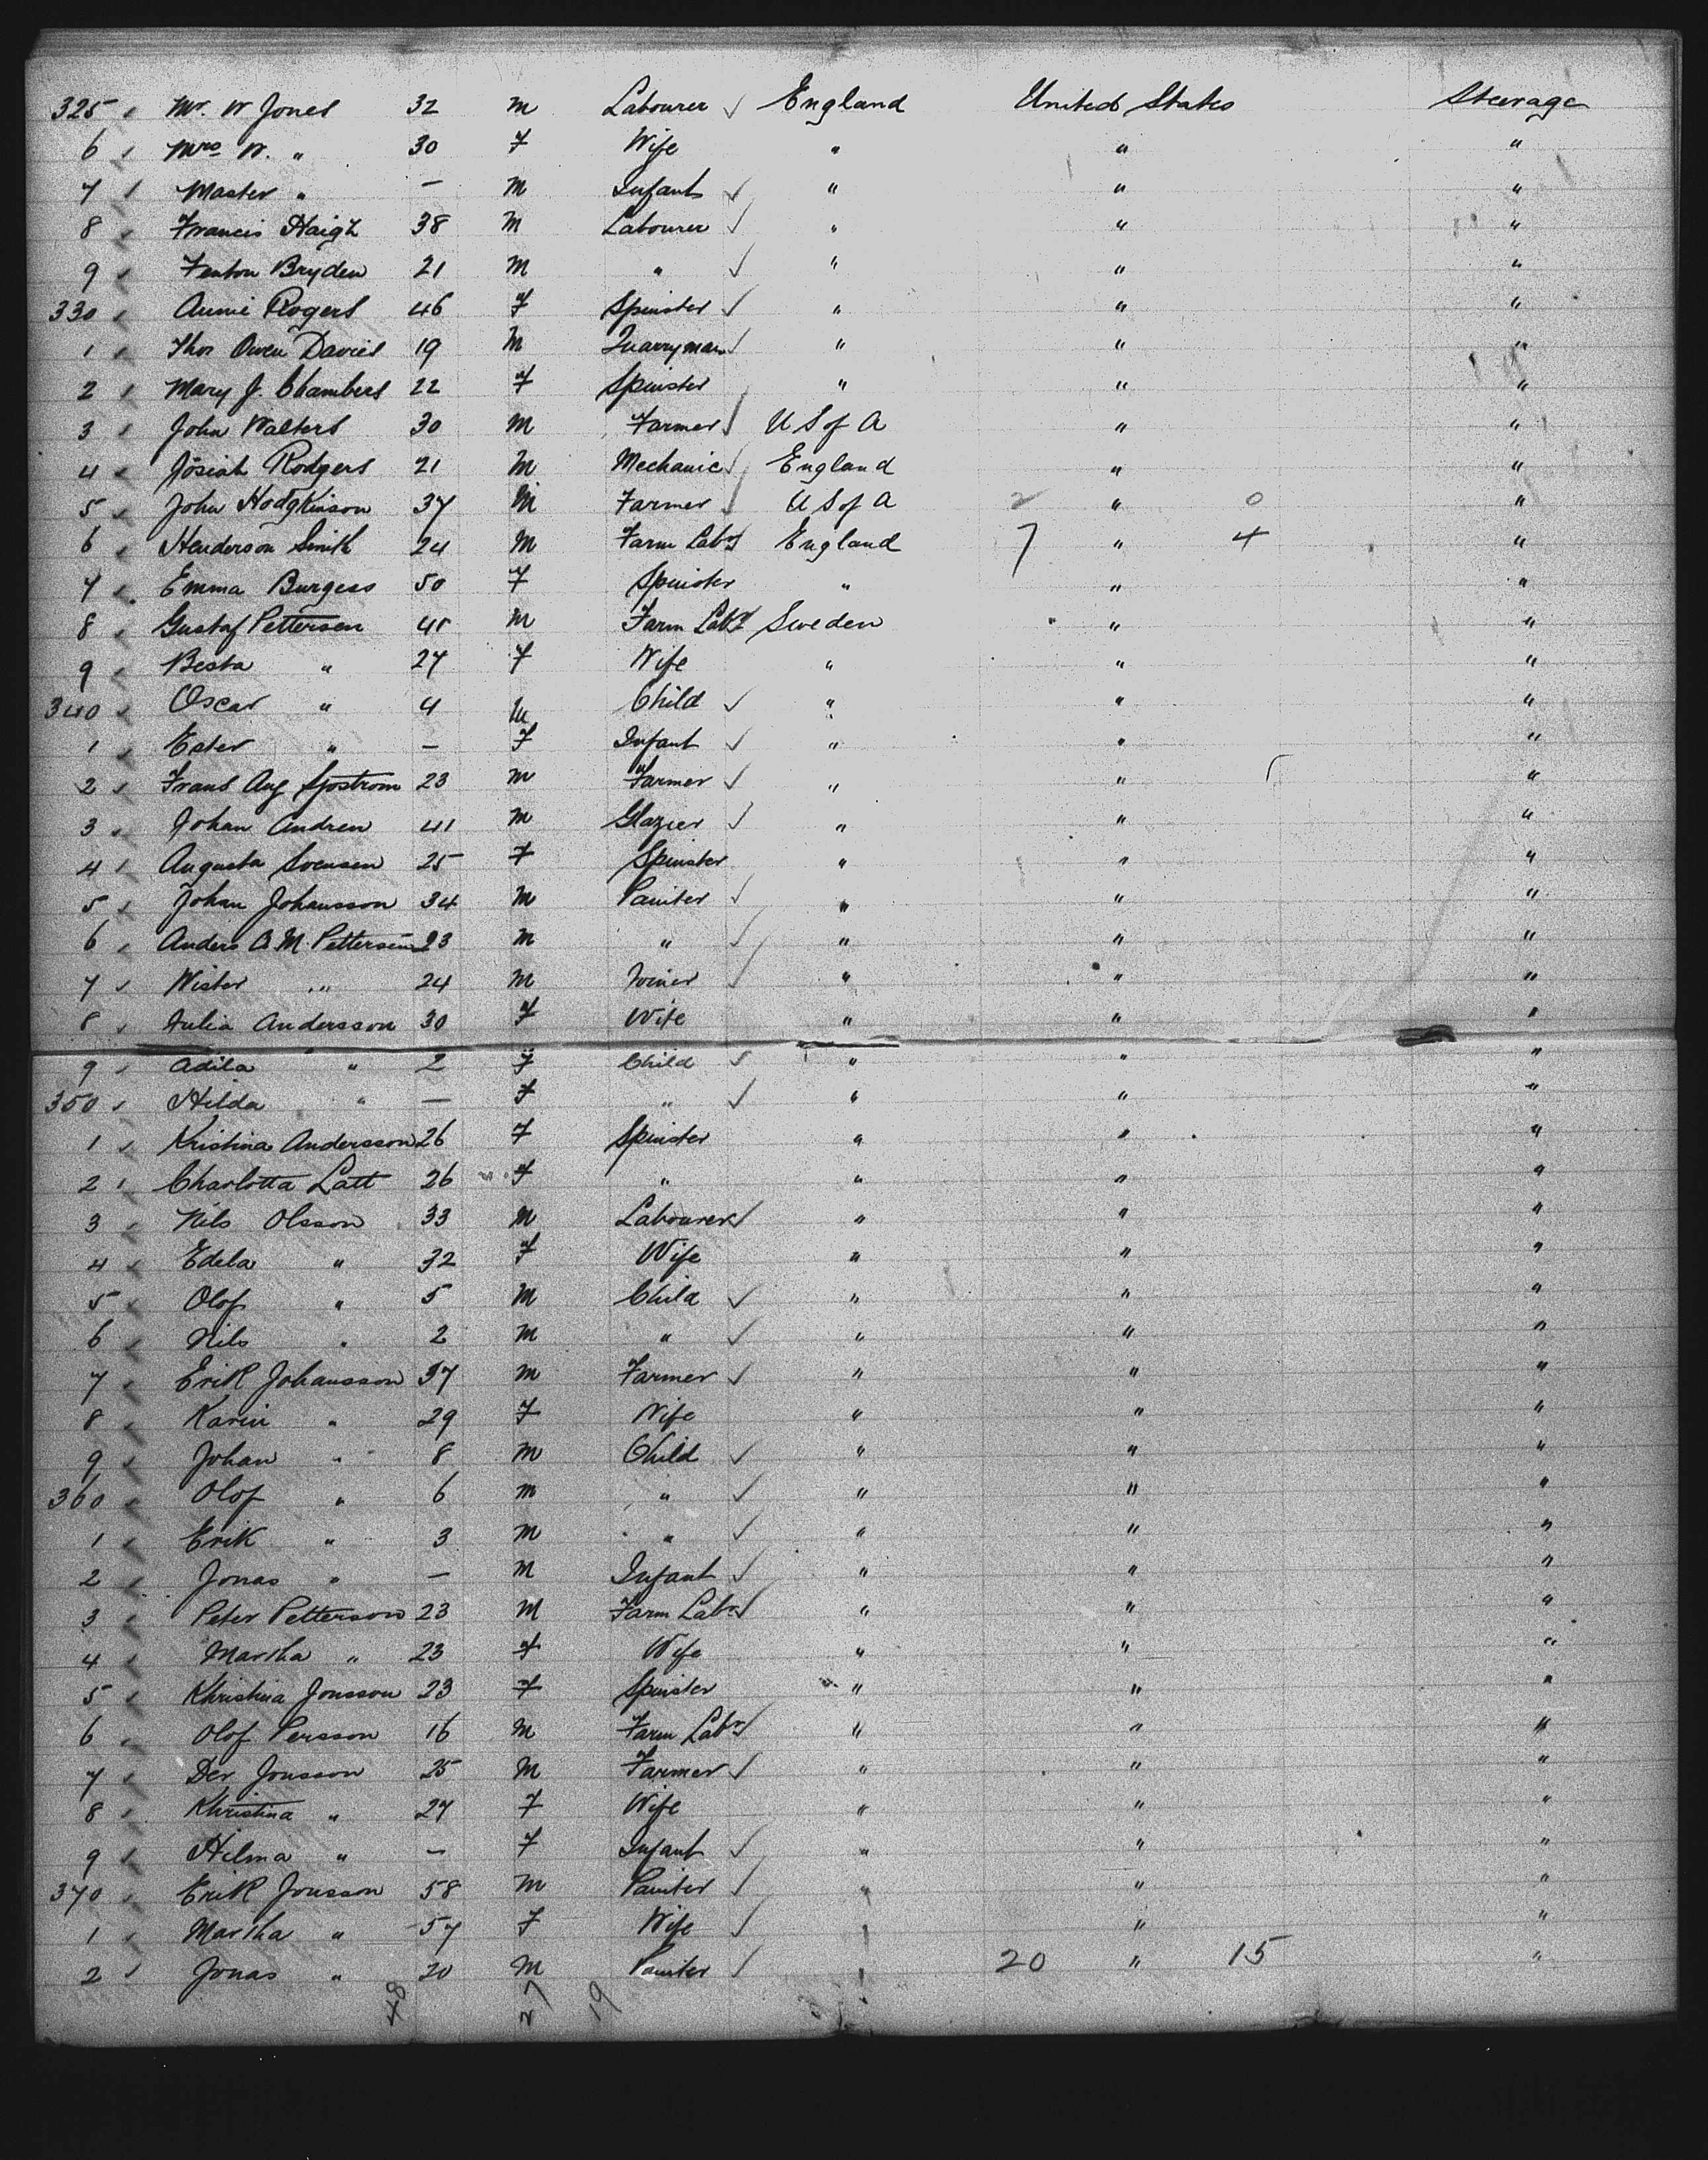 325 Mr. W Jones 32 m Labourer ✓ England United States Steerage
6 Mrs W. " 30 F Wife " " "
7 Master " — M Infant ✓ " " "
8 Francis Haigh 38 M Labourer ✓ " " "
9 Fenton Bryden 21 M " ✓ " " "
330 Annie Rogers 46 F Spinster ✓ " " "
1 Thos Owen Davies 19 M Quarryman ✓ " " "
2 Mary J. Chambers 22 F Spinster " " "
3 John Walters 30 M Farmer ✓ U S of A " "
4 Josiah Rodgers 21 M Mechanic ✓ England " "
5 John Hodgkinson 37 M Farmer ✓ U S of A 2 " 0 "
6 Henderson Smith 24 M Farm Labr ✓ England 7 " 4 "
7 Emma Burgess 50 F Spinster " " "
8 Gustaf Pettersen M Farm Labr ✓ Sweden " "
9 Besta " 27 F Wife " " "
340 Oscar " 4 M Child ✓ " " "
1 Ester " — F Infant ✓ " " "
2 Frans Aug Sjostrom 23 m Farmer ✓ " " "
3 Johan Andren 41 m Glazier ✓ " " "
4 Augusta Svensen 25 F Spinster " " "
5 Johan Johansson 34 M Painter ✓ " " "
6 Anders A. M. Pettersen 23 m " ✓ " " "
7 Wister " 24 M Joiner ✓ " " "
8 Julia Andersson 30 F Wife " " "
9 Adila " 2 F Child ✓ " " "
350 Hilda " — F " ✓ " " "
1 Kristina Andersson 26 F Spinster " " "
2 Charlotta Latt 26 F " " " "
3 Nils Olsson 33 M Labourer ✓ " " "
4 Edela " 32 F Wife " " "
5 Olof " 5 M Child ✓ " " "
6 Nils " 2 M " ✓ " " "
7 Erik Johansson 37 m Farmer ✓ " " "
8 Karin " 29 F Wife " " "
9 Johan " 8 m Child ✓ " " "
360 Olof " 6 m " ✓ " " "
1 Erik " 3 m " ✓ " " "
2 Jonas " — M Infant ✓ " " "
3 Peter Petterson 23 M Farm Labr ✓ " " "
4 Martha " 23 F Wife " " "
5 Khristina Jonsson 23 F Spinster " " "
6 Olof Persson 16 M Farm Labr ✓ " " "
7 Der Jonsson 25 M Farmer ✓ " " "
8 Khristina " 27 F Wife " " "
9 Hilma " — F Infant ✓ " " "
370 Erik Jonsson 58 m Painter ✓ " " "
1 Martha " 57 F Wife ✓ " "
2 Jonas " 20 M Painter ✓ 20 " 15 "
48 27 19